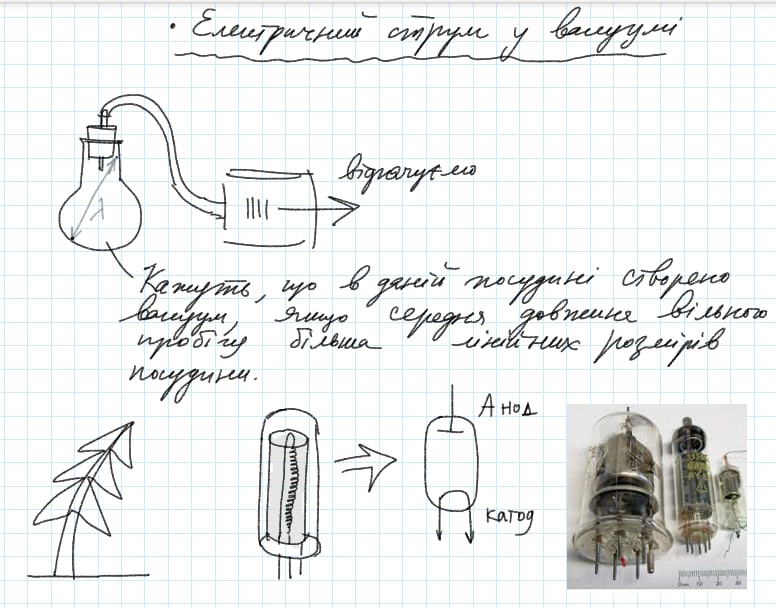 • Електричний струм у вакуумі
відкачуємо
λ
Кажуть, що в даній посудині створено
вакуум, якщо середня довжина вільного
пробігу більша лінійних розмірів
посудини.
Анод
катод
0 mm 10 20 30